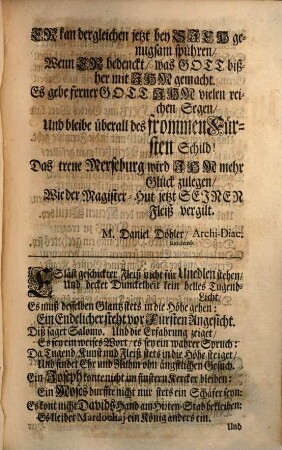 ER kan dergleichen jetzt bey SICH ge-
nugsam spühren/
Wenn ER bedenckt/ was GOTT biß-
her mit IHM gemacht.
Es gebe ferner GOTT IHM vielen rei-
chen Segen/
Und bleibe überall des frommen Für-
sten Schild!
Das treue Merseburg wird IHM mehr
Glück zulegen/
Wie der Magister-Hut jetzt SEINEN
Fleiß vergilt.
M. Daniel Döhler/ Archi-Diac.
ESläst geschickter Fleiß nicht für Unedlen stehen/
Und decket Dunckelheit kein helles Tugend-
Licht/
Es muß desselben Glantz stets in die Höhe gehen:
Ein Endelicher steht vor Fürsten Angesicht.
Diß saget Salomo. Und die Erfahrung zeiget/
Es sey ein weises Wort/ es sey ein wahrer Spruch:
Da Tugend/Kunst und Fleiß stets in die Höhe steiget/
Und findet Ehr und Ruhm ohn ängstlichen Gesuch.
Ein Joseph konte nicht im finstern Kercker bleiben:
Ein Moses durffte nicht nur stets ein Schäfer seyn:
Es kont nicht Davids Hand am Hirten-Stab bekleiben:
Es kleidet Mardochaj ein König anders ein.
Und